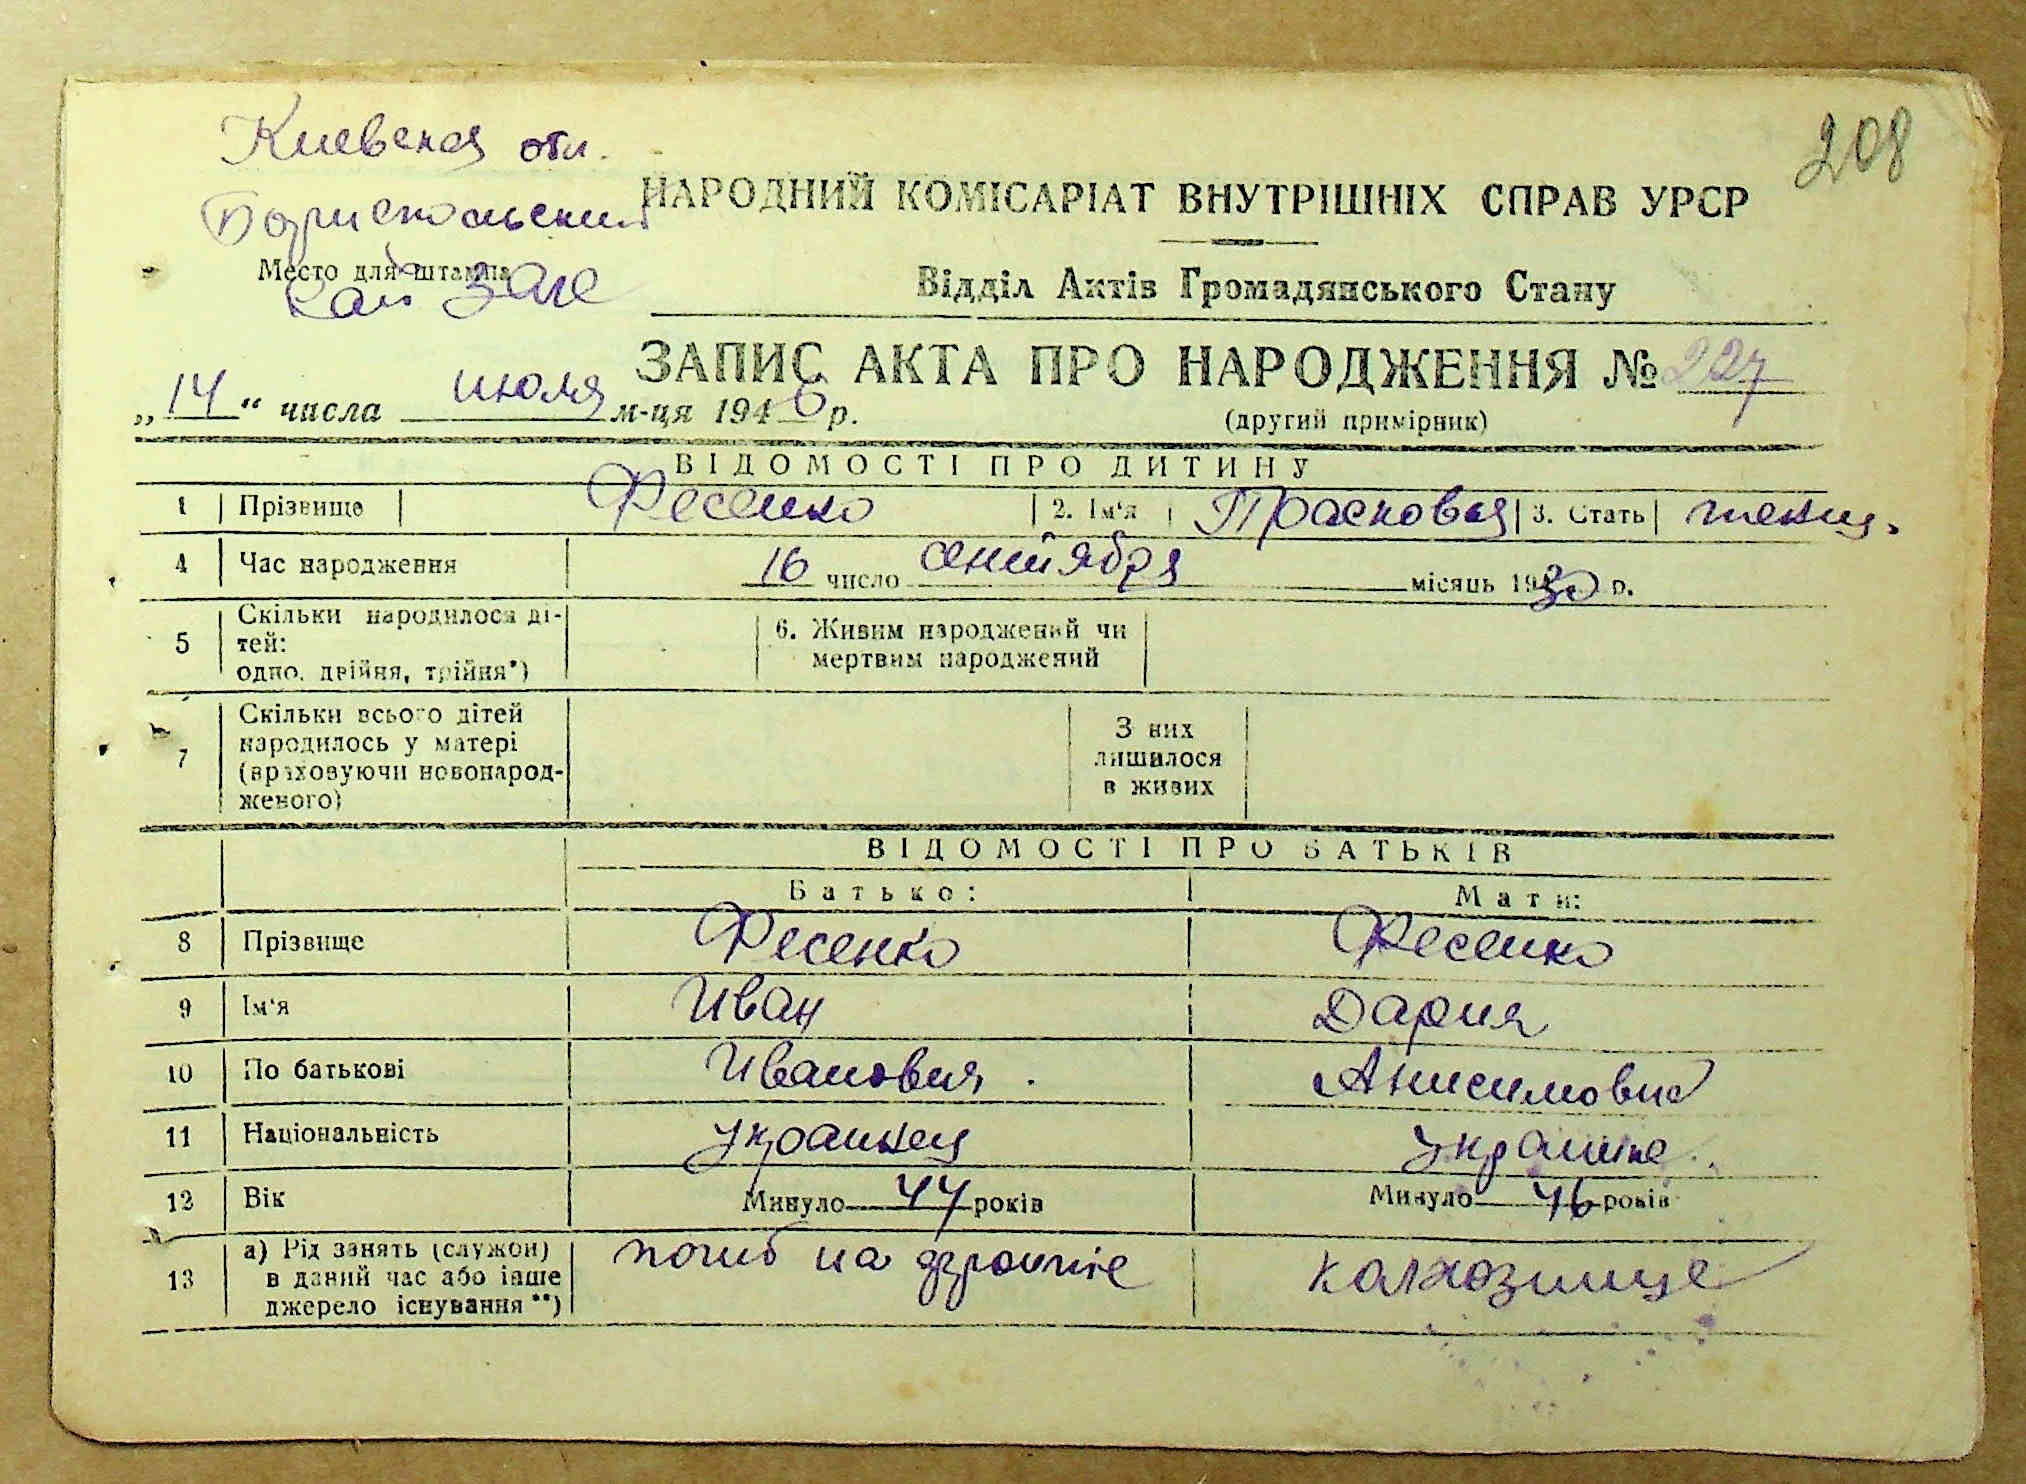 208
Киевская обл.
Бориспольский
НАРОДНИЙ КОМІСАРІАТ ВНУТРІШНІХ СПРАВ УРСР
Место для штампа
ЗАГС
Відділ Актів Громадянського Стану
ЗАПИС АКТА ПРО НАРОДЖЕННЯ № 227
„14“ числа июля м-ця 1946 р.
(другий примірник)
ВІДОМОСТІ ПРО ДИТИНУ
1 Прізвище Фесенко 2. Ім'я Прасковья 3. Стать женщ.
4 Час народження 16 число сентября місяць 1930 р.
5 Скільки народилося ді-
тей:
одно, двійня, трійня*)
6. Живим народжений чи
мертвим народжений
7 Скільки всього дітей
народилось у матері
(враховуючи новонарод-
женого)
З них
лишилося
в живих
ВІДОМОСТІ ПРО БАТЬКІВ
Батько: Мати:
8 Прізвище Фесенко Фесенко
9 Ім'я Иван Дария
10 По батькові Иванович Анисимовна
11 Національність украинец украинка
12 Вік Минуло 44 років Минуло 46 років
13 а) Рід занять (служби)
в даний час або інше
джерело існування **)
погиб на фронте колхозница